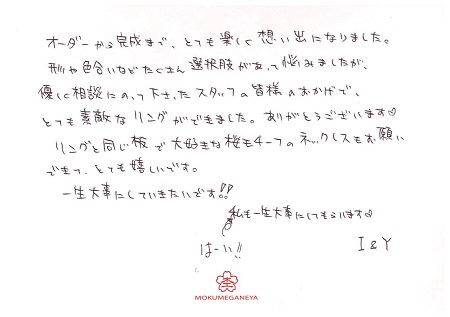 オーダーから完成まで、とても楽しい想い出になりました。
形や色合いなどたくさん選択肢があって悩みましたが、
優しく相談にのって下さったスタッフの皆様のおかげで、
とても素敵なリングができました。ありがとうございます♡
リングと同じ板で大好きな桜モチーフのネックレスもお願い
できて、とても嬉しいです。
一生大事にしていきたいです!!
私も一生大事にしてもらいます♡
はーい!!
I & Y
MOKUMEGANEYA